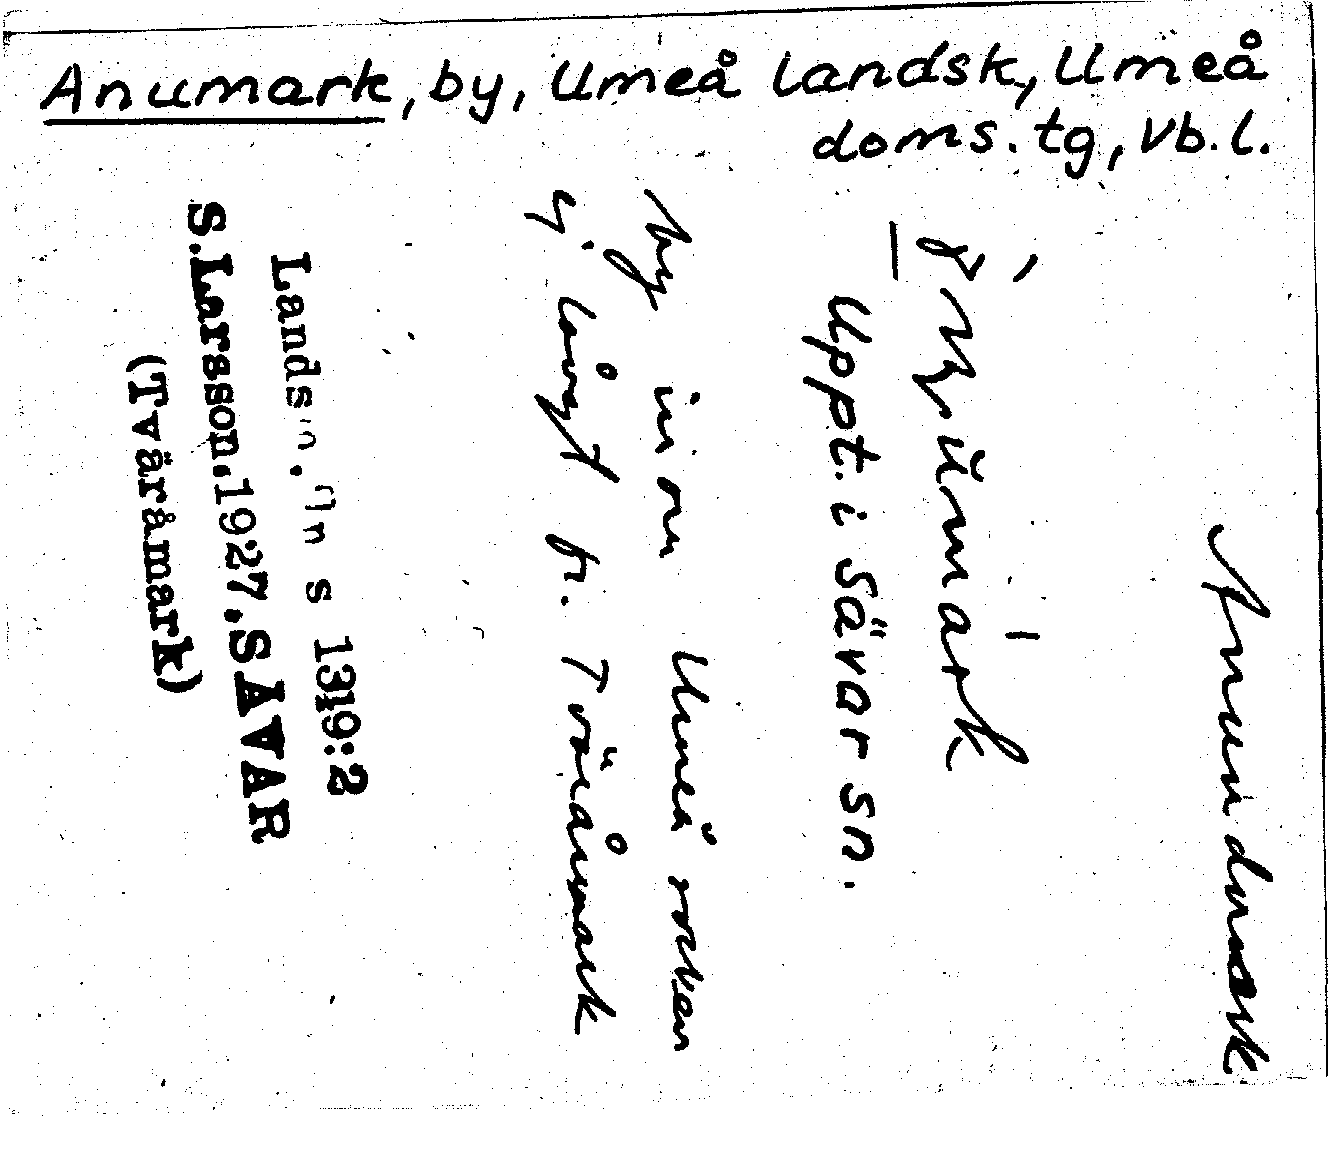 Anumark, by, Umeå landsk, Umeå
doms.tg, Vb.l.
Anundmark
Uppt. i Sävar sn.
by inom Umeå socken
ej långt fr. Tväråmark
Landsm. 1319:2
S.Larsson,1927,SÄVAR
(Tväråmark)